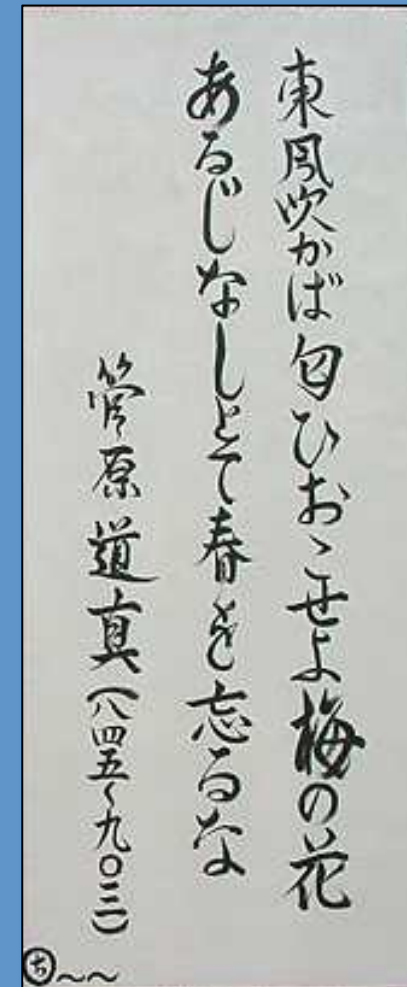 東風吹かば匂ひおこせよ梅の花
あるじなしとて春を忘るな
菅原道真(八四五〜九〇三)
ち〜〜